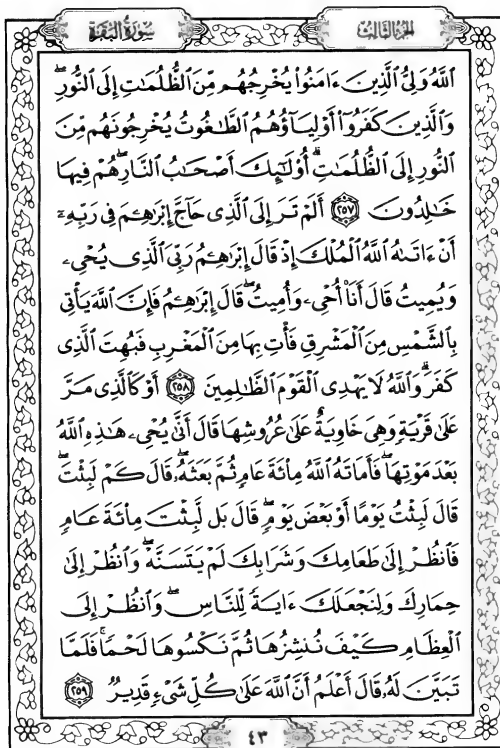 الجزء الثالث
سورة البقرة
ٱللَّهُ وَلِىُّ ٱلَّذِينَ ءَامَنُوا۟ يُخْرِجُهُم مِّنَ ٱلظُّلُمَٰتِ إِلَى ٱلنُّورِۖ
وَٱلَّذِينَ كَفَرُوٓا۟ أَوْلِيَآؤُهُمُ ٱلطَّٰغُوتُ يُخْرِجُونَهُم مِّنَ
ٱلنُّورِ إِلَى ٱلظُّلُمَٰتِۗ أُو۟لَٰٓئِكَ أَصْحَٰبُ ٱلنَّارِۖ هُمْ فِيهَا
خَٰلِدُونَ ٢٥٧ أَلَمْ تَرَ إِلَى ٱلَّذِى حَآجَّ إِبْرَٰهِـۧمَ فِى رَبِّهِۦٓ
أَنْ ءَاتَىٰهُ ٱللَّهُ ٱلْمُلْكَ إِذْ قَالَ إِبْرَٰهِـۧمُ رَبِّىَ ٱلَّذِى يُحْىِۦ
وَيُمِيتُ قَالَ أَنَا۠ أُحْىِۦ وَأُمِيتُۖ قَالَ إِبْرَٰهِـۧمُ فَإِنَّ ٱللَّهَ يَأْتِى
بِٱلشَّمْسِ مِنَ ٱلْمَشْرِقِ فَأْتِ بِهَا مِنَ ٱلْمَغْرِبِ فَبُهِتَ ٱلَّذِى
كَفَرَۗ وَٱللَّهُ لَا يَهْدِى ٱلْقَوْمَ ٱلظَّٰلِمِينَ ٢٥٨ أَوْ كَٱلَّذِى مَرَّ
عَلَىٰ قَرْيَةٍ وَهِىَ خَاوِيَةٌ عَلَىٰ عُرُوشِهَا قَالَ أَنَّىٰ يُحْىِۦ هَٰذِهِ ٱللَّهُ
بَعْدَ مَوْتِهَاۖ فَأَمَاتَهُ ٱللَّهُ مِا۟ئَةَ عَامٍ ثُمَّ بَعَثَهُۥۖ قَالَ كَمْ لَبِثْتَۖ
قَالَ لَبِثْتُ يَوْمًا أَوْ بَعْضَ يَوْمٍۖ قَالَ بَل لَّبِثْتَ مِا۟ئَةَ عَامٍ
فَٱنظُرْ إِلَىٰ طَعَامِكَ وَشَرَابِكَ لَمْ يَتَسَنَّهْۖ وَٱنظُرْ إِلَىٰ
حِمَارِكَ وَلِنَجْعَلَكَ ءَايَةً لِّلنَّاسِۖ وَٱنظُرْ إِلَى
ٱلْعِظَامِ كَيْفَ نُنشِزُهَا ثُمَّ نَكْسُوهَا لَحْمًاۚ فَلَمَّا
تَبَيَّنَ لَهُۥ قَالَ أَعْلَمُ أَنَّ ٱللَّهَ عَلَىٰ كُلِّ شَىْءٍ قَدِيرٌ ٢٥٩
٤٣